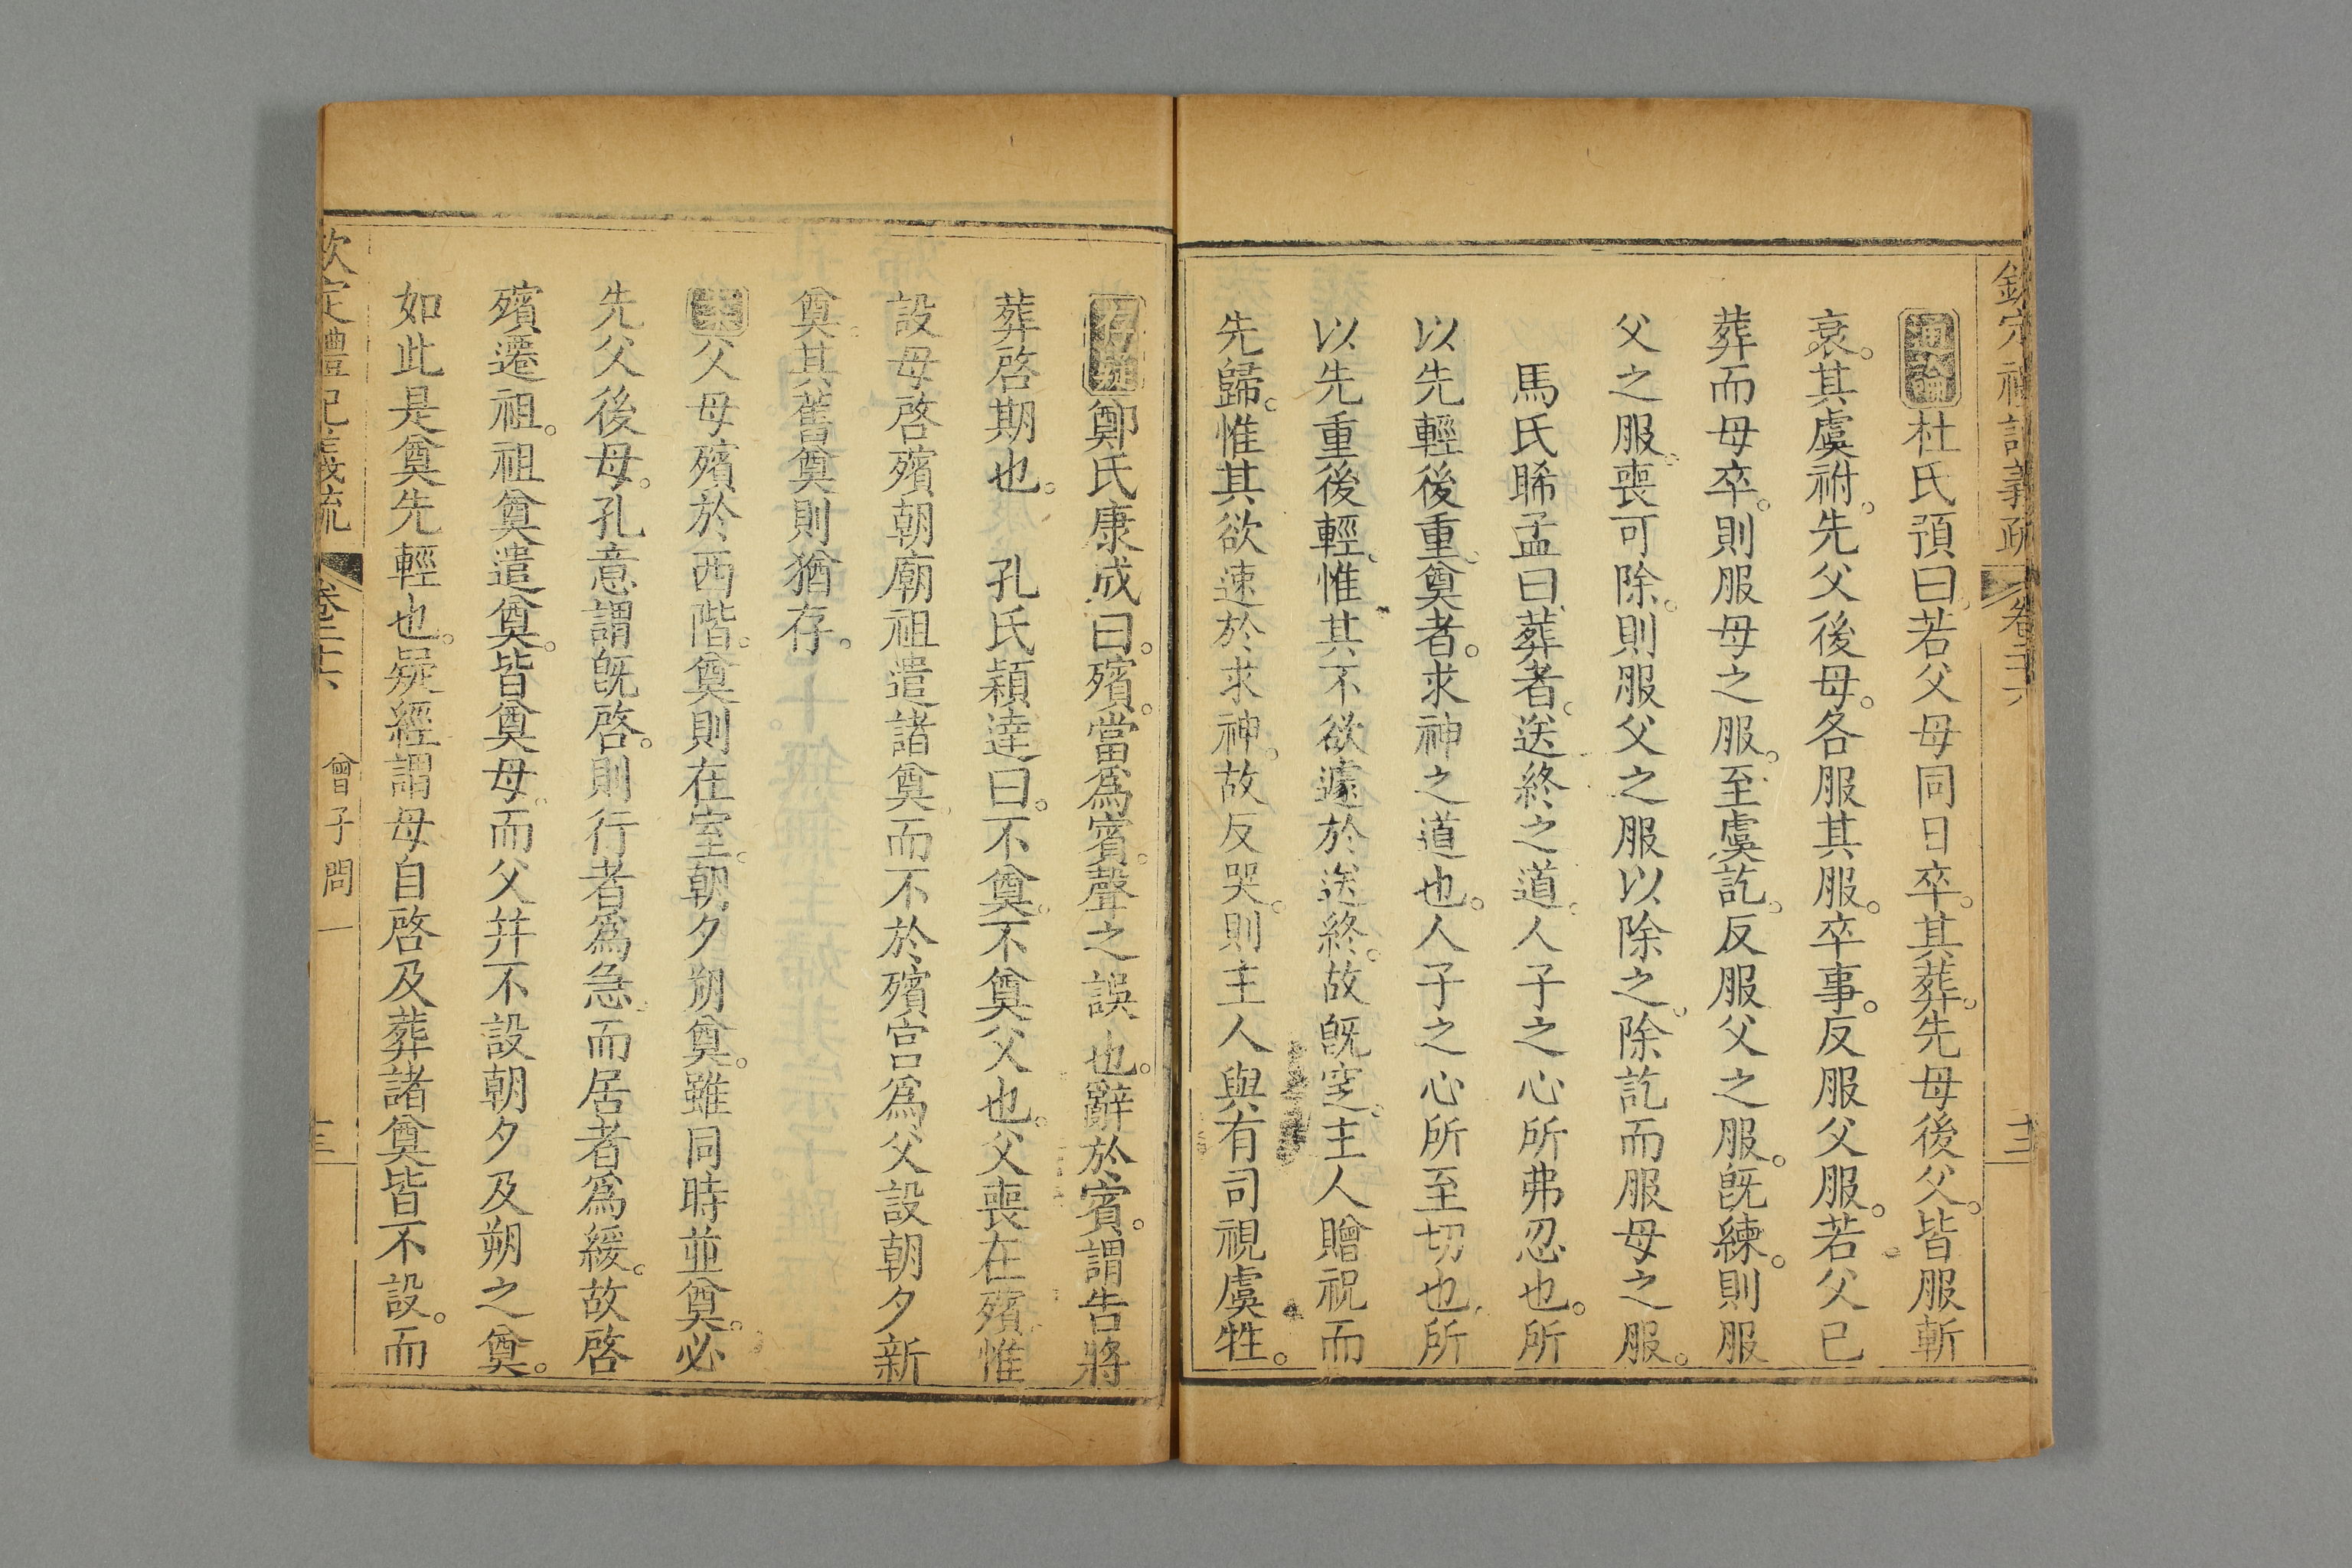 欽定禮記義疏 卷二十六 十三
通論杜氏預曰若父母同日卒。其葬。先母後父。皆服斬
衰。其虞祔。先父後母。各服其服。卒事。反服父服。若父已
葬而母卒。則服母之服。至虞訖。反服父之服。旣練。則服
父之服喪可除。則服父之服以除之。除訖而服母之服。
馬氏晞孟曰葬者。送終之道。人子之心所弗忍也。所
以先輕後重。奠者。求神之道也。人子之心所至切也。所
以先重後輕。惟其不欲遽於送終。故旣窆。主人贈祝而
先歸。惟其欲速於求神。故反哭。則主人與有司視虞牲。
鄭氏康成曰。殯。當爲賓。聲之誤也。辭於賓。謂告將
葬啓期也。 孔氏穎達曰。不奠。不奠父也。父喪在殯。惟
設母啓殯朝廟祖遣諸奠。而不於殯宮爲父設朝夕新
奠。其舊奠則猶存。
案父母殯於西階。奠則在室。朝夕朔奠。雖同時並奠。必
先父後母。孔意謂旣啓。則行者爲急。而居者爲緩。故啓
殯遷祖。祖奠遣奠。皆奠母。而父并不設朝夕及朔之奠。
如此是奠先輕也。疑經謂母自啓及葬諸奠皆不設。而
欽定禮記義疏 卷二十六 曾子問一 十三